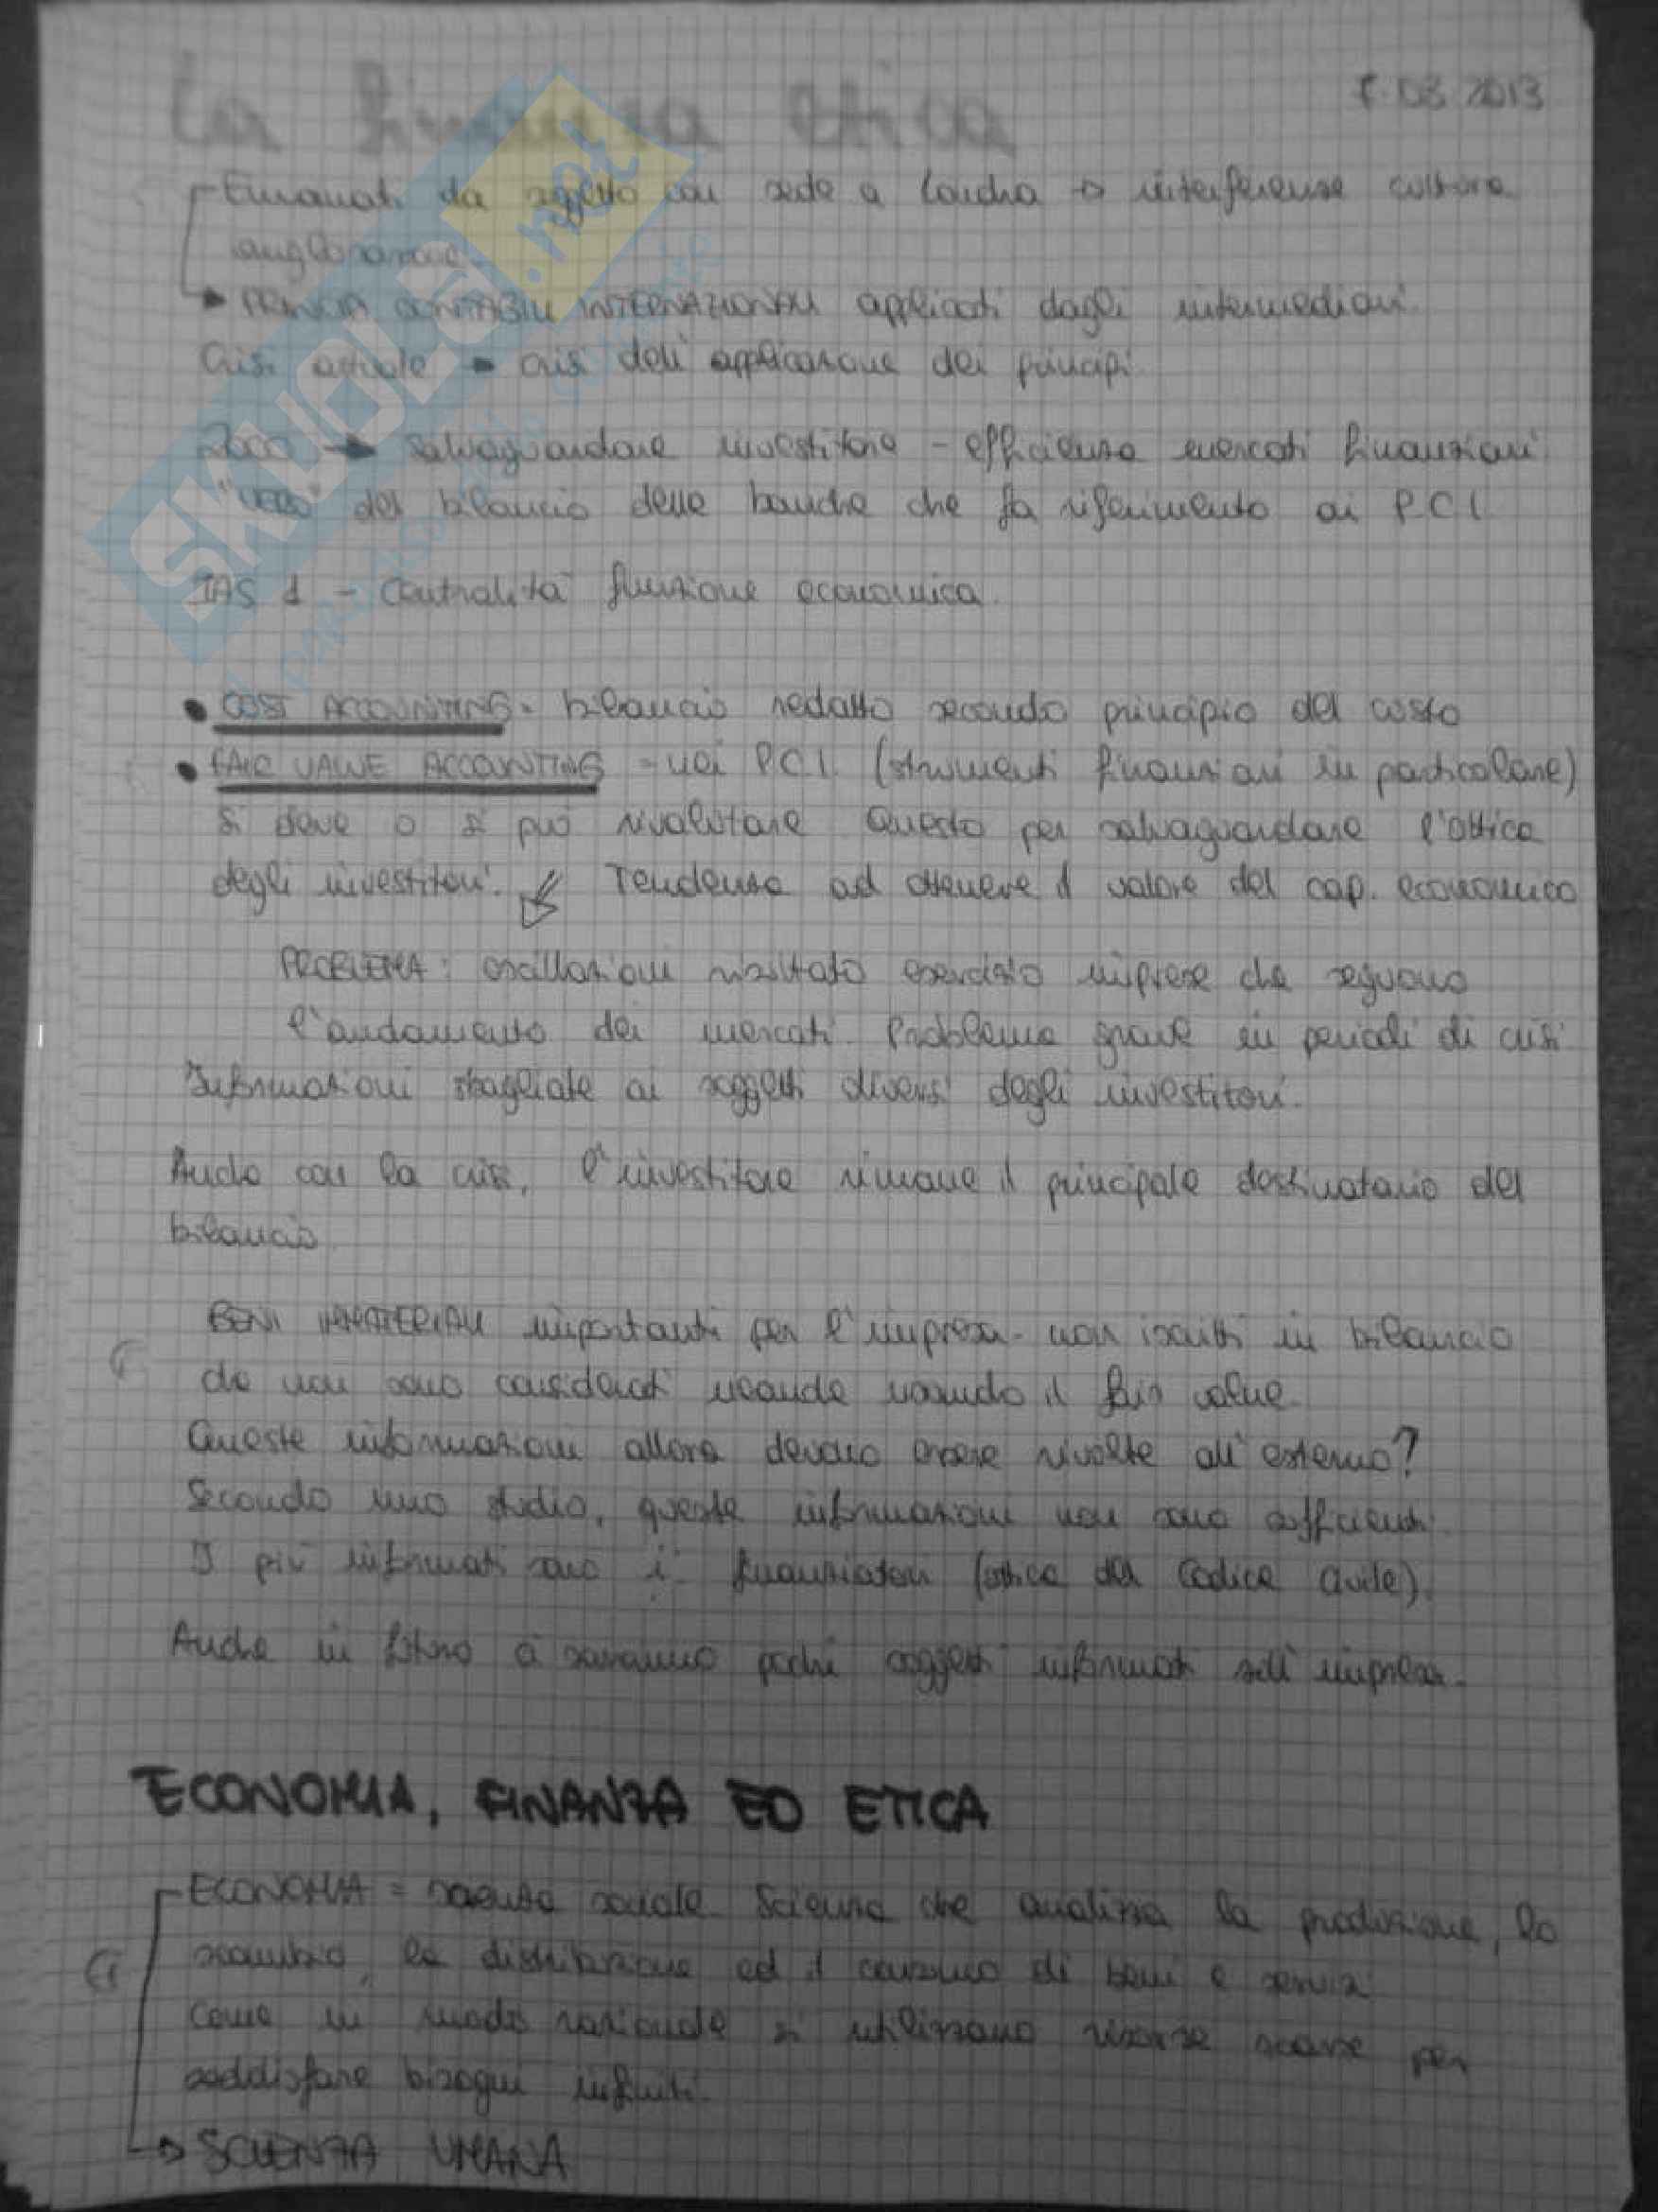 La finanza etica
7.03.2013
Emanati da soggetto con sede a Londra → interferenze cultura
anglosassone.
PRINCIPI CONTABILI INTERNAZIONALI applicati dagli intermediari.
Crisi attuale → crisi dell'applicazione dei principi.
2000 → salvaguardare investitore - efficienza mercati finanziari
"VERSO" del bilancio delle banche che fa riferimento ai P.C.I.
IAS 1 - Centralità funzione economica.
• COST ACCOUNTING = bilancio redatto secondo principio del costo
• FAIR VALUE ACCOUNTING = nei P.C.I. (strumenti finanziari in particolare)
si deve o si può rivalutare. Questo per salvaguardare l'ottica
degli investitori. Tendenza ad ottenere il valore del cap. economico
PROBLEMA: oscillazioni risultato esercizio imprese che seguono
l'andamento dei mercati. Problema grave in periodi di crisi.
Informazioni sbagliate ai soggetti diversi degli investitori.
Anche con la crisi, l'investitore rimane il principale destinatario del
bilancio.
BENI IMMATERIALI importanti per l'impresa - non iscritti in bilancio
che non sono considerati neanche usando il fair value.
Queste informazioni allora devono essere rivolte all'esterno?
Secondo uno studio, queste informazioni non sono sufficienti.
I più informati sono i finanziatori (ottica del Codice Civile).
Anche in futuro ci saranno pochi soggetti informati sull'impresa.
ECONOMIA, FINANZA ED ETICA
ECONOMIA = scienza sociale. Scienza che analizza la produzione, lo
scambio, la distribuzione ed il consumo di beni e servizi.
Come in modo razionale si utilizzano risorse scarse per
soddisfare bisogni infiniti.
→ SCIENZA UMANA
SKUOLA.net